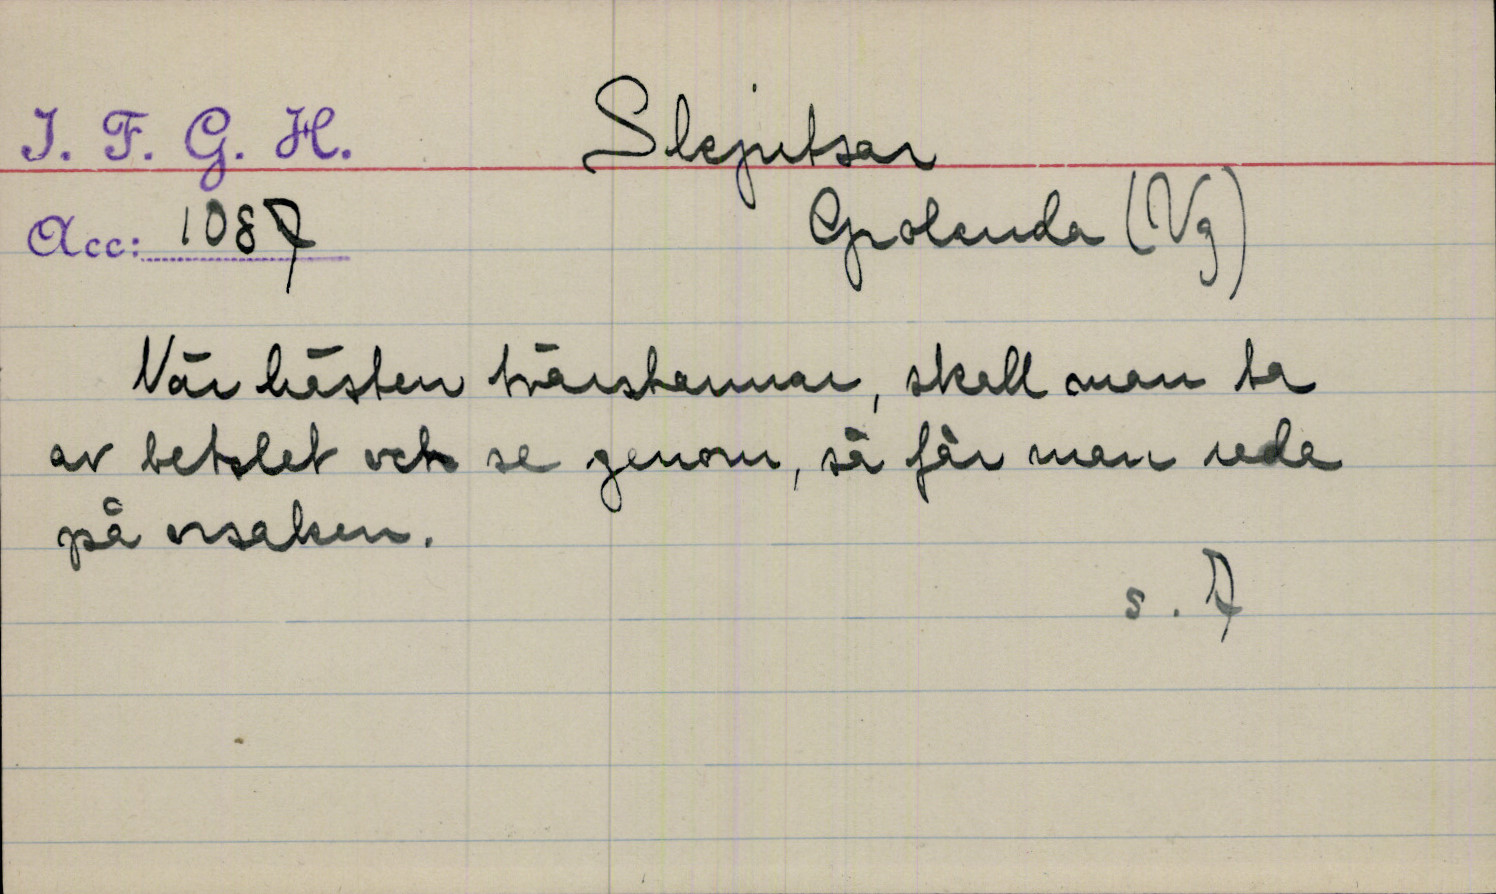 I. F. G. H.
Slejutsar
Acc: 1087
Grolanda (Vg)
När hästen tvärstannar, skall man ta
av betslet och se genom, så får man reda
på orsaken.
s. 7